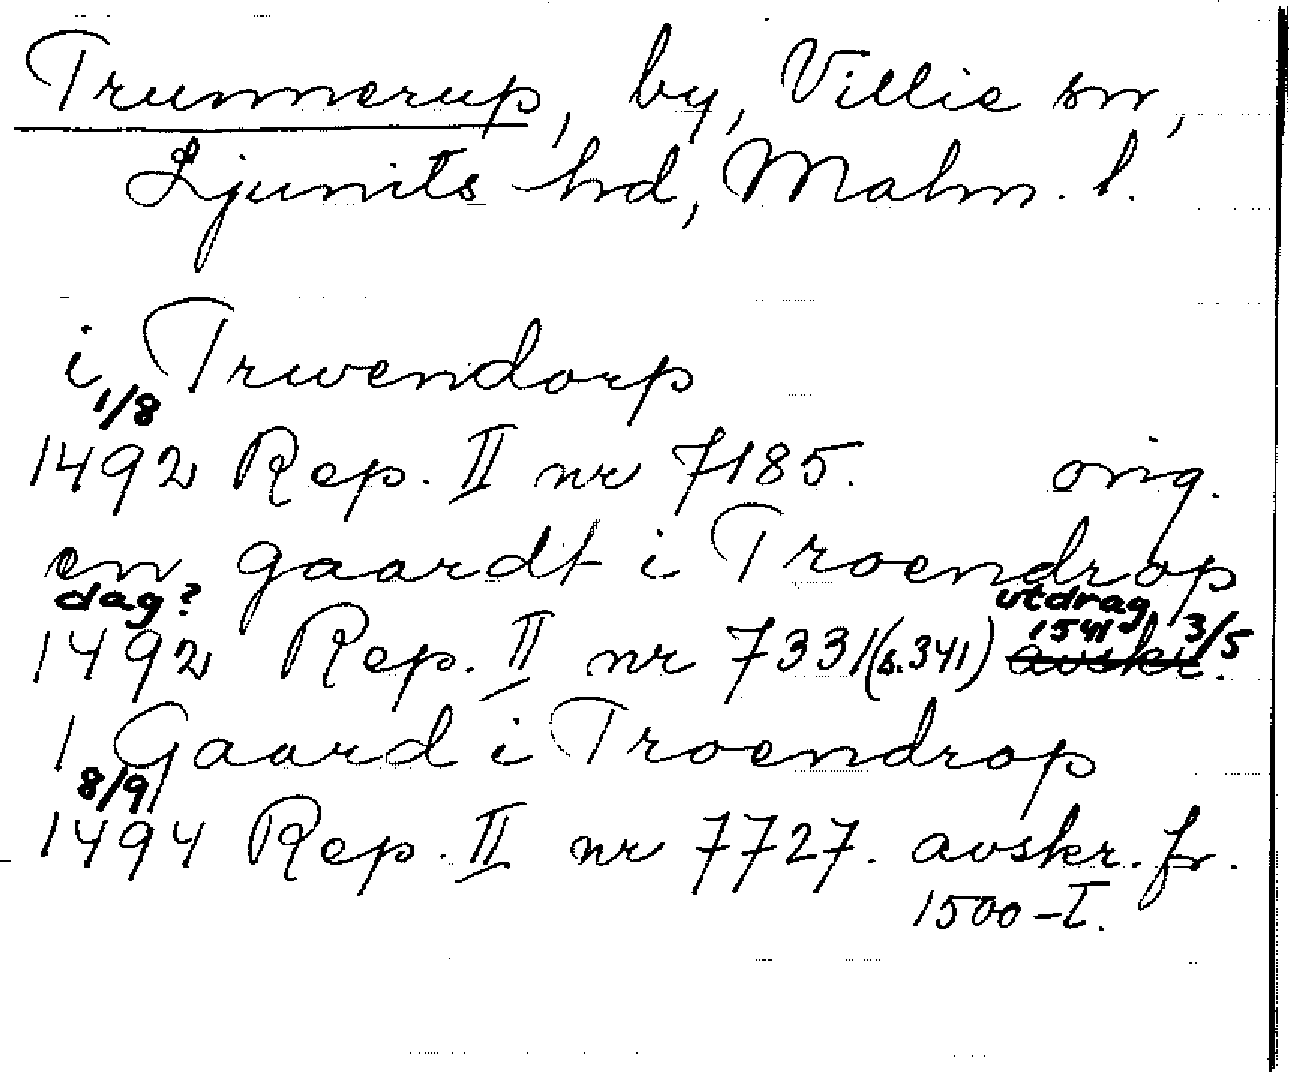 Trunnerup, by, Villie sn,
Ljunits hd, Malm. l.
i Trwendorp
1/8
1492 Rep. II nr 7185. orig.
en gaardt i Troendrop
dag? utdrag
1492 Rep. II nr 7331 (s.341) avskr. 1541 3/5
1 Gaard i Troendrop
8/9
1494 Rep. II nr 7727. avskr. fr.
1500-T.